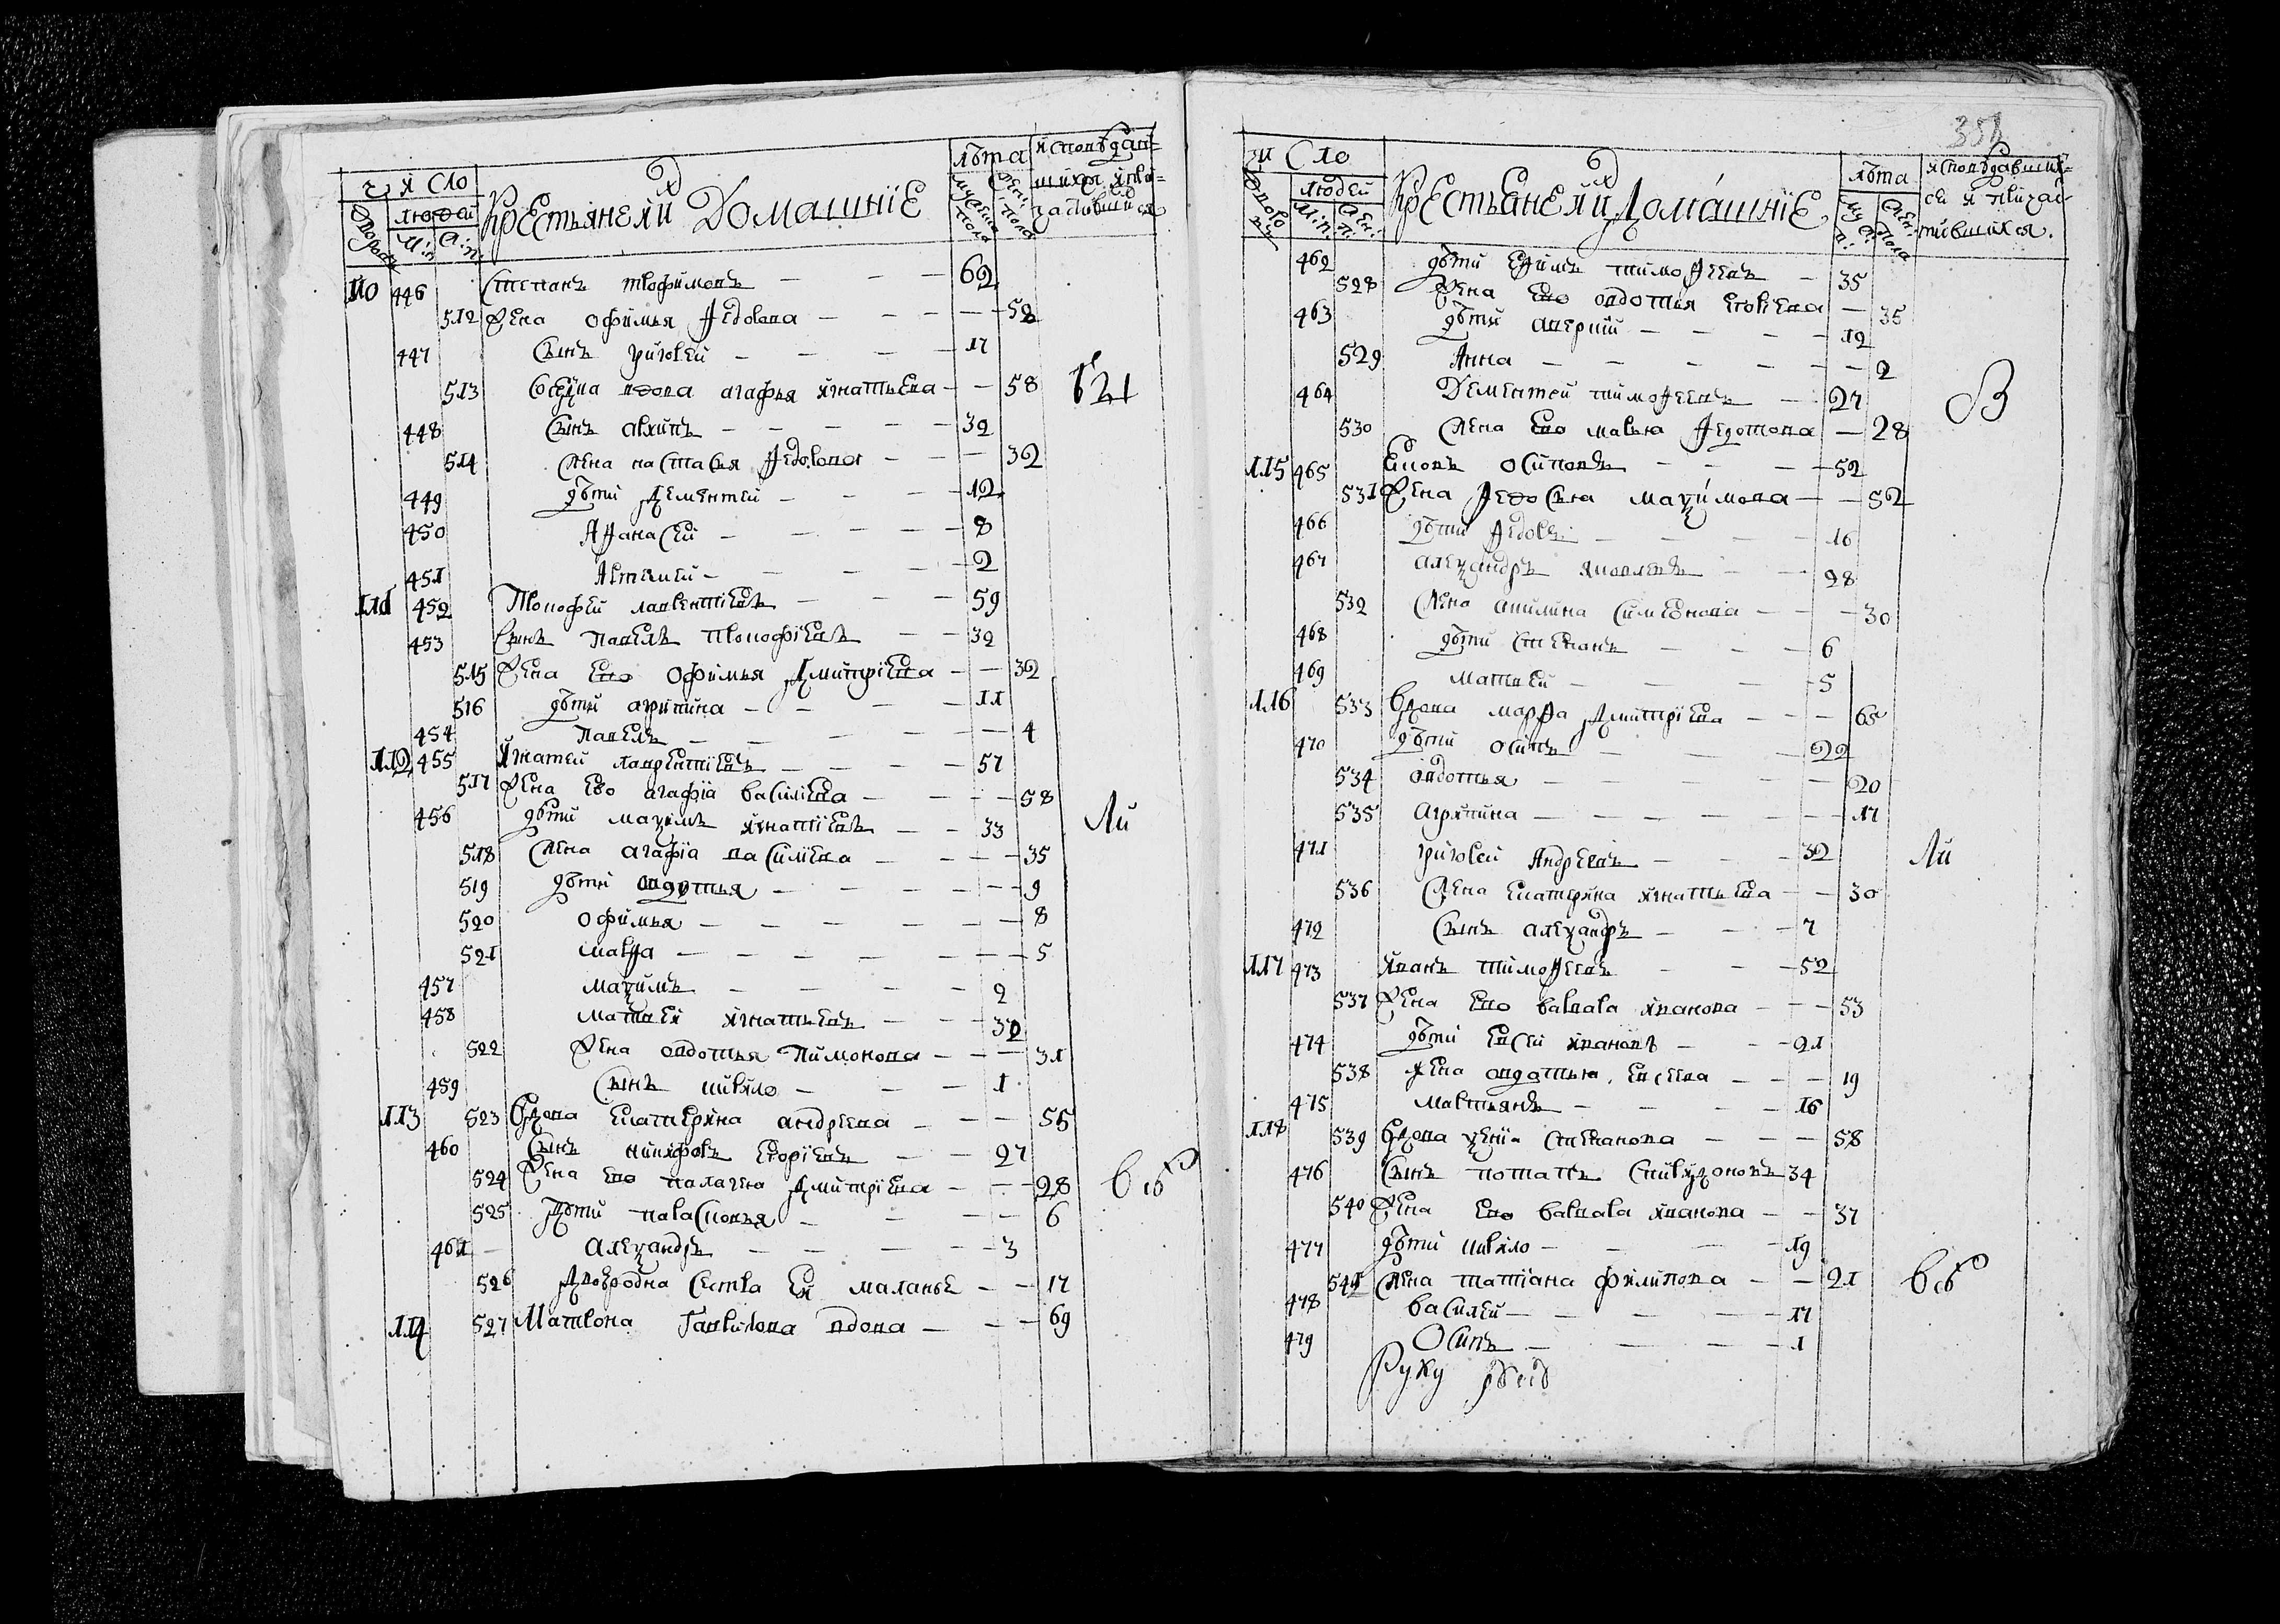 число
Дворовъ
людей
м: п:
ж: п:
Крестьяне и ихъ Домашнїе
лѣта
мужеска пола
жен: пола
исповѣдав-
шихся и при-
частившихся
110 446 Степанъ трофимовъ — — — 62
512 Жена офимья Ѳедорова — — — 52
447 Сынъ григорей — — — 17
513 вдова агафья игнатьева — — 58
448 Сынъ архипъ — — — 32
514 жена настасья Ѳедорова — — — 32
449 дѣти Дементей — — — 12
450 Аѳанасей — — — 8
451 Артемей — — — 2
111 452 Прокофей лаврентїевъ — — — 59
453 Сынъ Павелъ прокофїевъ — — 32
515 Жена ево офимья Дмитрїева — — 32
516 дѣти агрипина — — — 11
454 Павелъ — — — 4
112 455 Игнатей лаврентїевъ — — — 57
517 Жена ево агафїа василїева — — — 58
456 дѣти маѯимъ игнатїевъ — — 33
518 Жена агафїа василїева — — — 35
519 дѣти авдотья — — — 9
520 офимья — — — 8
521 марѳа — — — 5
457 маѯимъ — — — 2
458 матвей игнатьевъ — — 32
522 Жена авдотья Пимонова — — — 31
459 Сынъ кирило — — — 1
113 523 Вдова екатерина андреева — — — 55
460 Сынъ никифоръ егорїевъ — — 27
524 Жена ево палагея Дмитрїева — — — 28
525 Дѣти парасковья — — — 6
461 алеѯандръ — — — 3
526 Двоеродна сестра ея маланья — — 17
114 527 Матрона Гаврилова вдова — — — 69
Ли
352
число
Дворовъ
людей
м: п:
жен: п:
Крестьяне и ихъ Домашнїе
лѣта
муж: п:
жен: пола
исповѣдавших-
ся и причас-
тившихся.
462 дѣти Ефимъ тимоѳеевъ — 35
528 Жена ево авдотья егорїева — 35
463 дѣти аверкїй — — — 12
529 Анна — — — 2
464 Дементей тимоѳеевъ — 27
530 Жена ево марья Ѳедотова — 28
115 465 Емовъ осиповъ — — — 52
531 Жена Ѳедосья маѯимова — — 52
466 дѣти Ѳедоръ — — — 16
467 алеѯандръ яковлевъ — — 28
532 Жена акилина симеонова — — — 30
468 дѣти степанъ — — 6
469 матвей — — — 5
116 533 Вдова марѳа Дмитрїева — — — 65
470 дѣти осипъ — — — 22
534 авдотья — — — 20
535 агрипина — — — 17
471 григорей Андреевъ — — — 32
536 Жена екатерина игнатьева — — 30
472 Сынъ алеѯандръ — — — 7
117 473 Иванъ тимоѳеевъ — — — 52
537 Жена ево варвара иванова — — — 53
474 дѣти евсей ивановъ — — 21
538 жена авдотья, евсеева — — — 19
475 мартьянъ — — — 16
118 539 Вдова ѯенїя степанова — — — 58
476 Сынъ потапъ спиридоновъ 34
540 Жена ево варвара иванова — — 37
477 дѣти кирило — — — 19
541 Жена татїана филипова — — 21
478 василей — — — 17
479 Осипъ — — — 1
Ли
Руку